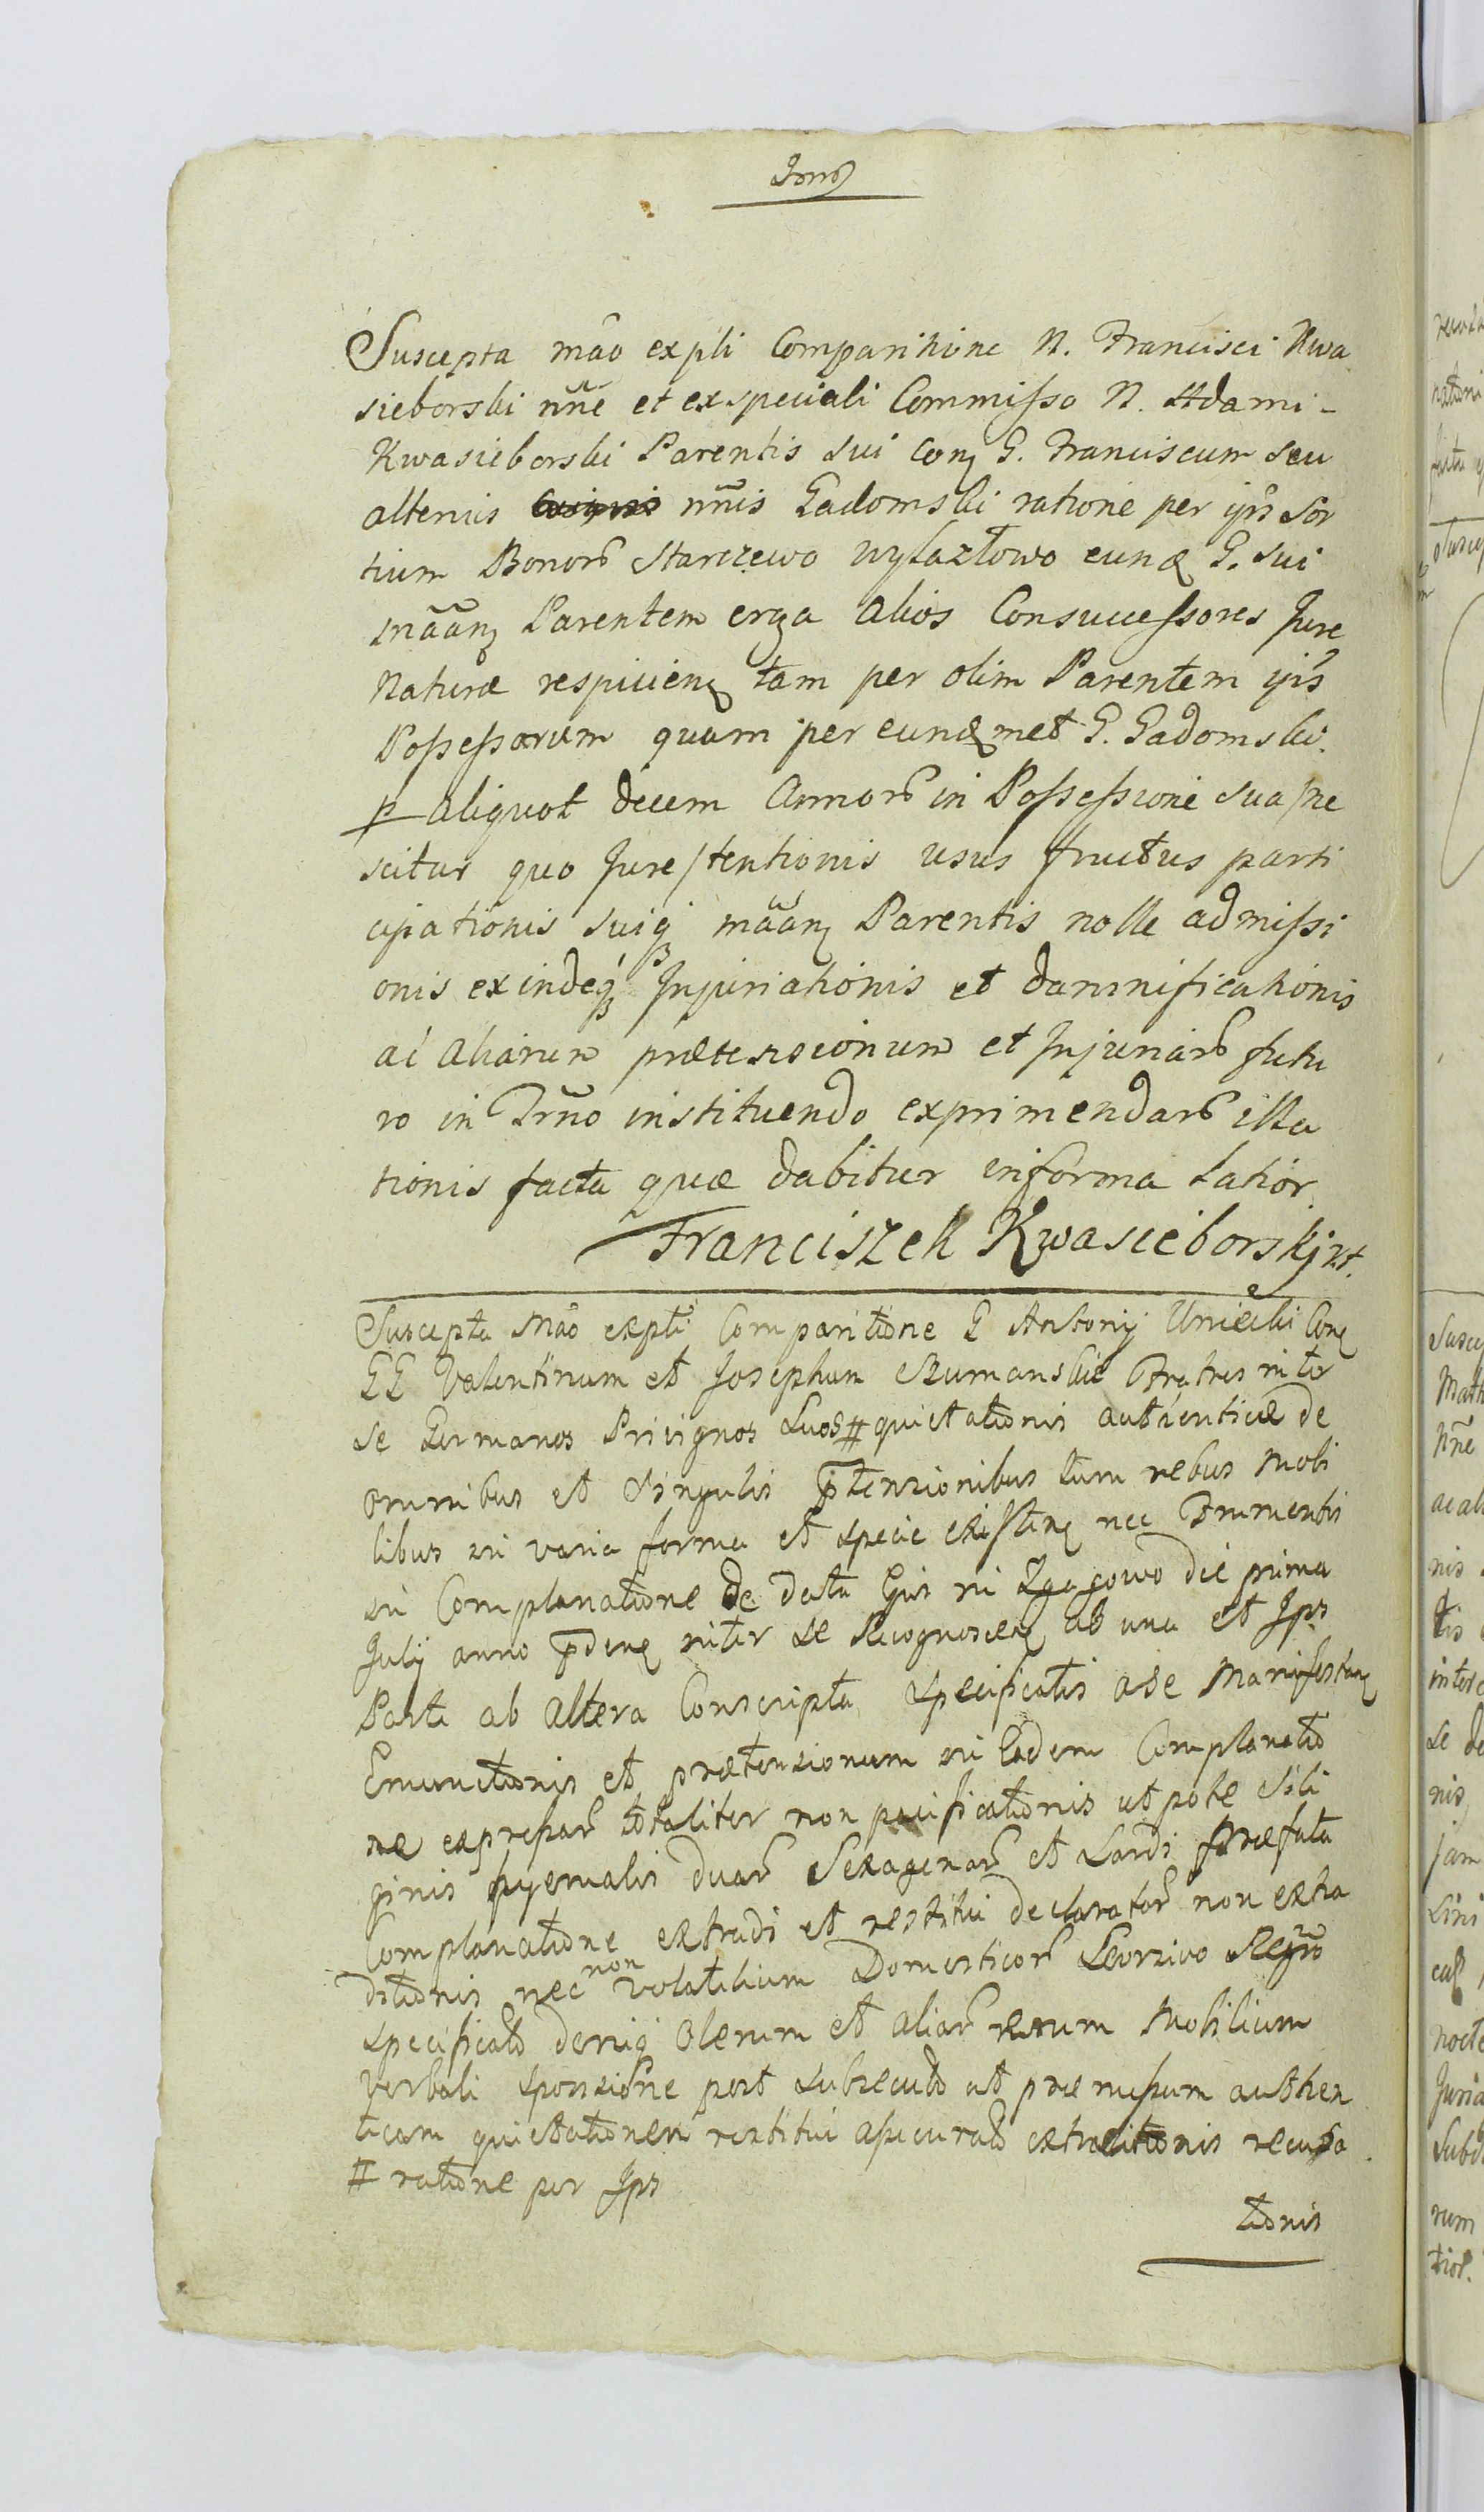 Suscepta mão expli Comparitione N. Francisci Kwa
sieborski nñe et ex speciali Commisso N. Adami -
Kwasieborski Parentis sui con G. Franciscum seu
alterius nñis Gadomski ratione per ips Sor
tium Bonor Starczewo wyłazłowo eund G. sui
mãan Parentem erga alios Consuccessores Jure
Naturæ respicien tam per olim Parentem ips
Possessorum quam per eundmet G. Gadomski
p aliquot decem Annor in Possessione sua /ne
scitur quo Jure/ tentionis usus fructus parti
cipationis suiq mãan Parentis nolle admissi
onis exindeq Injuriationis et damnificationis
ac aliarum prætensionum et Injuriar futu
ro in Trño instituendo exprimendar illa
tionis facta quæ dabitur in forma latior.
Franciszek Kwasieborski
Suscepta Mão expli Comparitione G Antonij Uniecki Con
GG Valentinum et Josephum Szumanskie Fratres inter
se Germanos Privignos suos # quietationis authenticæ de
omnibus et singulis ptensionibus tum rebus Mobi
libus in varia forma et specie existen nec Frumentis
in Complanatione de data Ejus in Zgagowo die prima
July anno pden inter se Recognoscen ab una et Ips
Parte ab altera Conscripta specificatis a se Manifestan
Emunctionis et prætensionum in Eadem Complanatio
ne expressar totaliter non pacificationis utpote Sili
ginis hyemalis duar Sexagenar et Lardi præfata
Complanatione extradi et restitui declarator non extra
ditionis nec non volatilium Domesticor Seorsivo Regro
specificato deniq Olerum et aliar rerum Mobilium
verbali sponsione post subsecuto ut præmissum authen
ticam quietationem restitui assecurato extraditionis recusa
# ratione per Ips
tionis